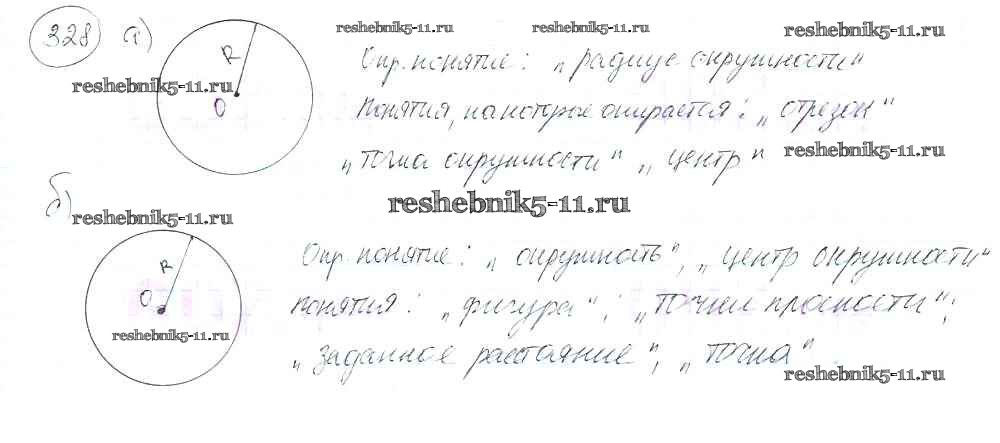 328 а)
reshebnik5-11.ru
reshebnik5-11.ru
R
Опр. понятие: „радиус окружности"
reshebnik5-11.ru
O
Понятия, на которые опирается: „отрезок"
„точка окружности" „центр"
reshebnik5-11.ru
б)
reshebnik5-11.ru
reshebnik5-11.ru
R
Опр. понятие: „окружность", „центр окружности"
O
понятия: „фигура"; „точки плоскости";
reshebnik5-11.ru
„заданное расстояние"; „точка"
reshebnik5-11.ru